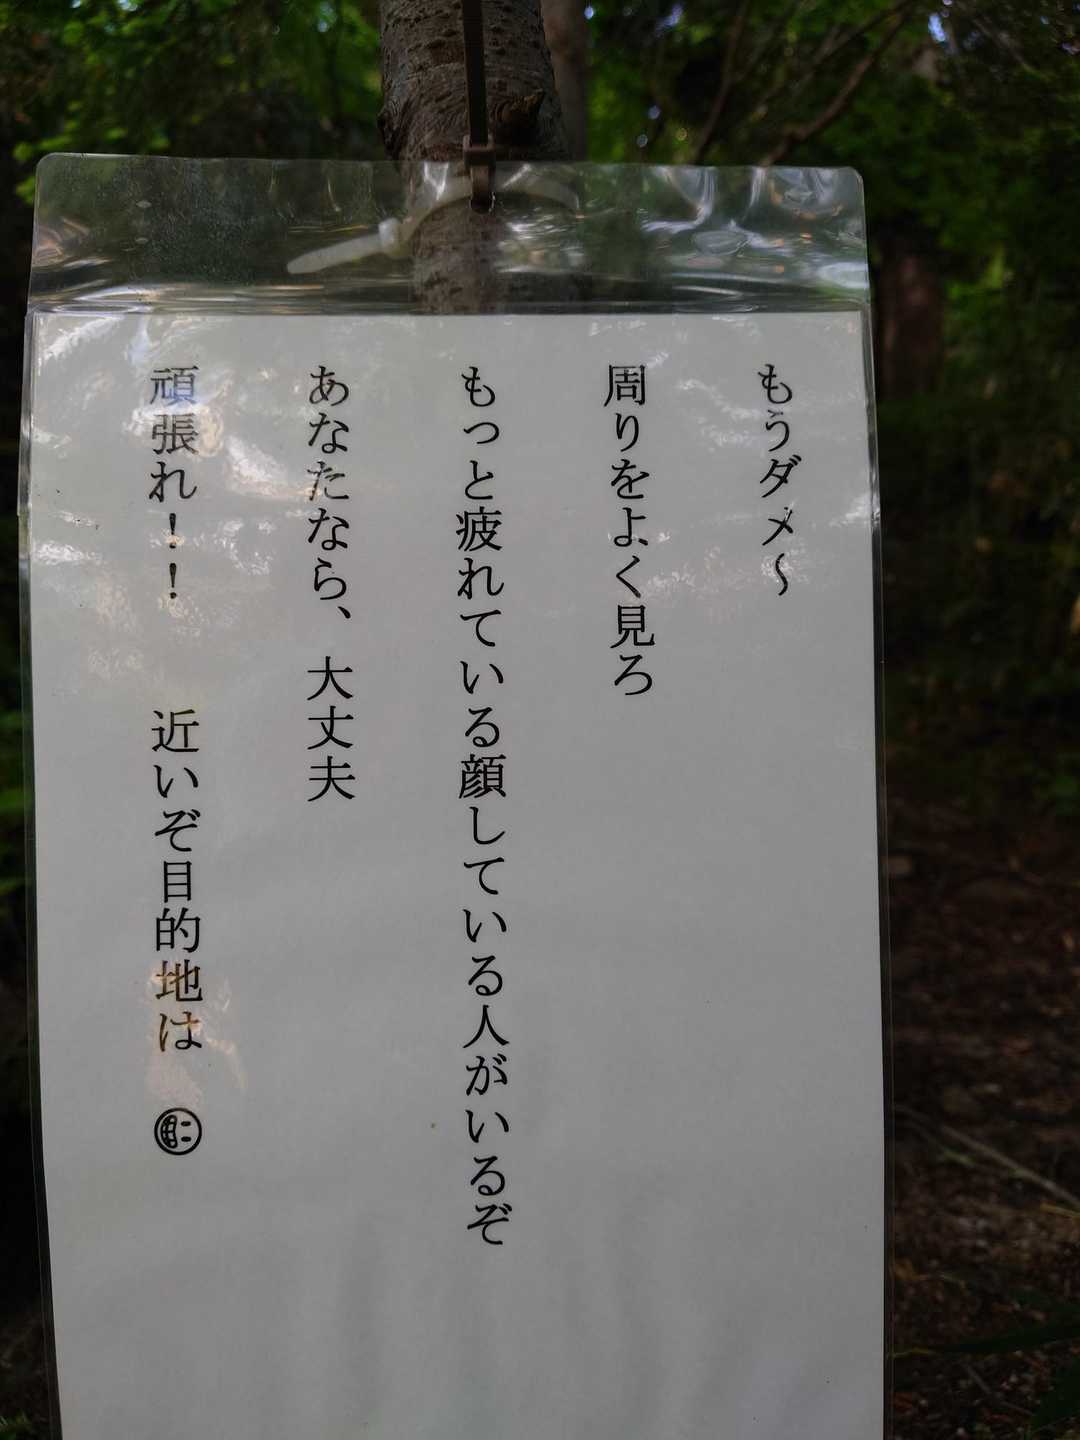 もうダメ〜
周りをよく見ろ
もっと疲れている顔している人がいるぞ
あなたなら、大丈夫
頑張れ！！　近いぞ目的地は